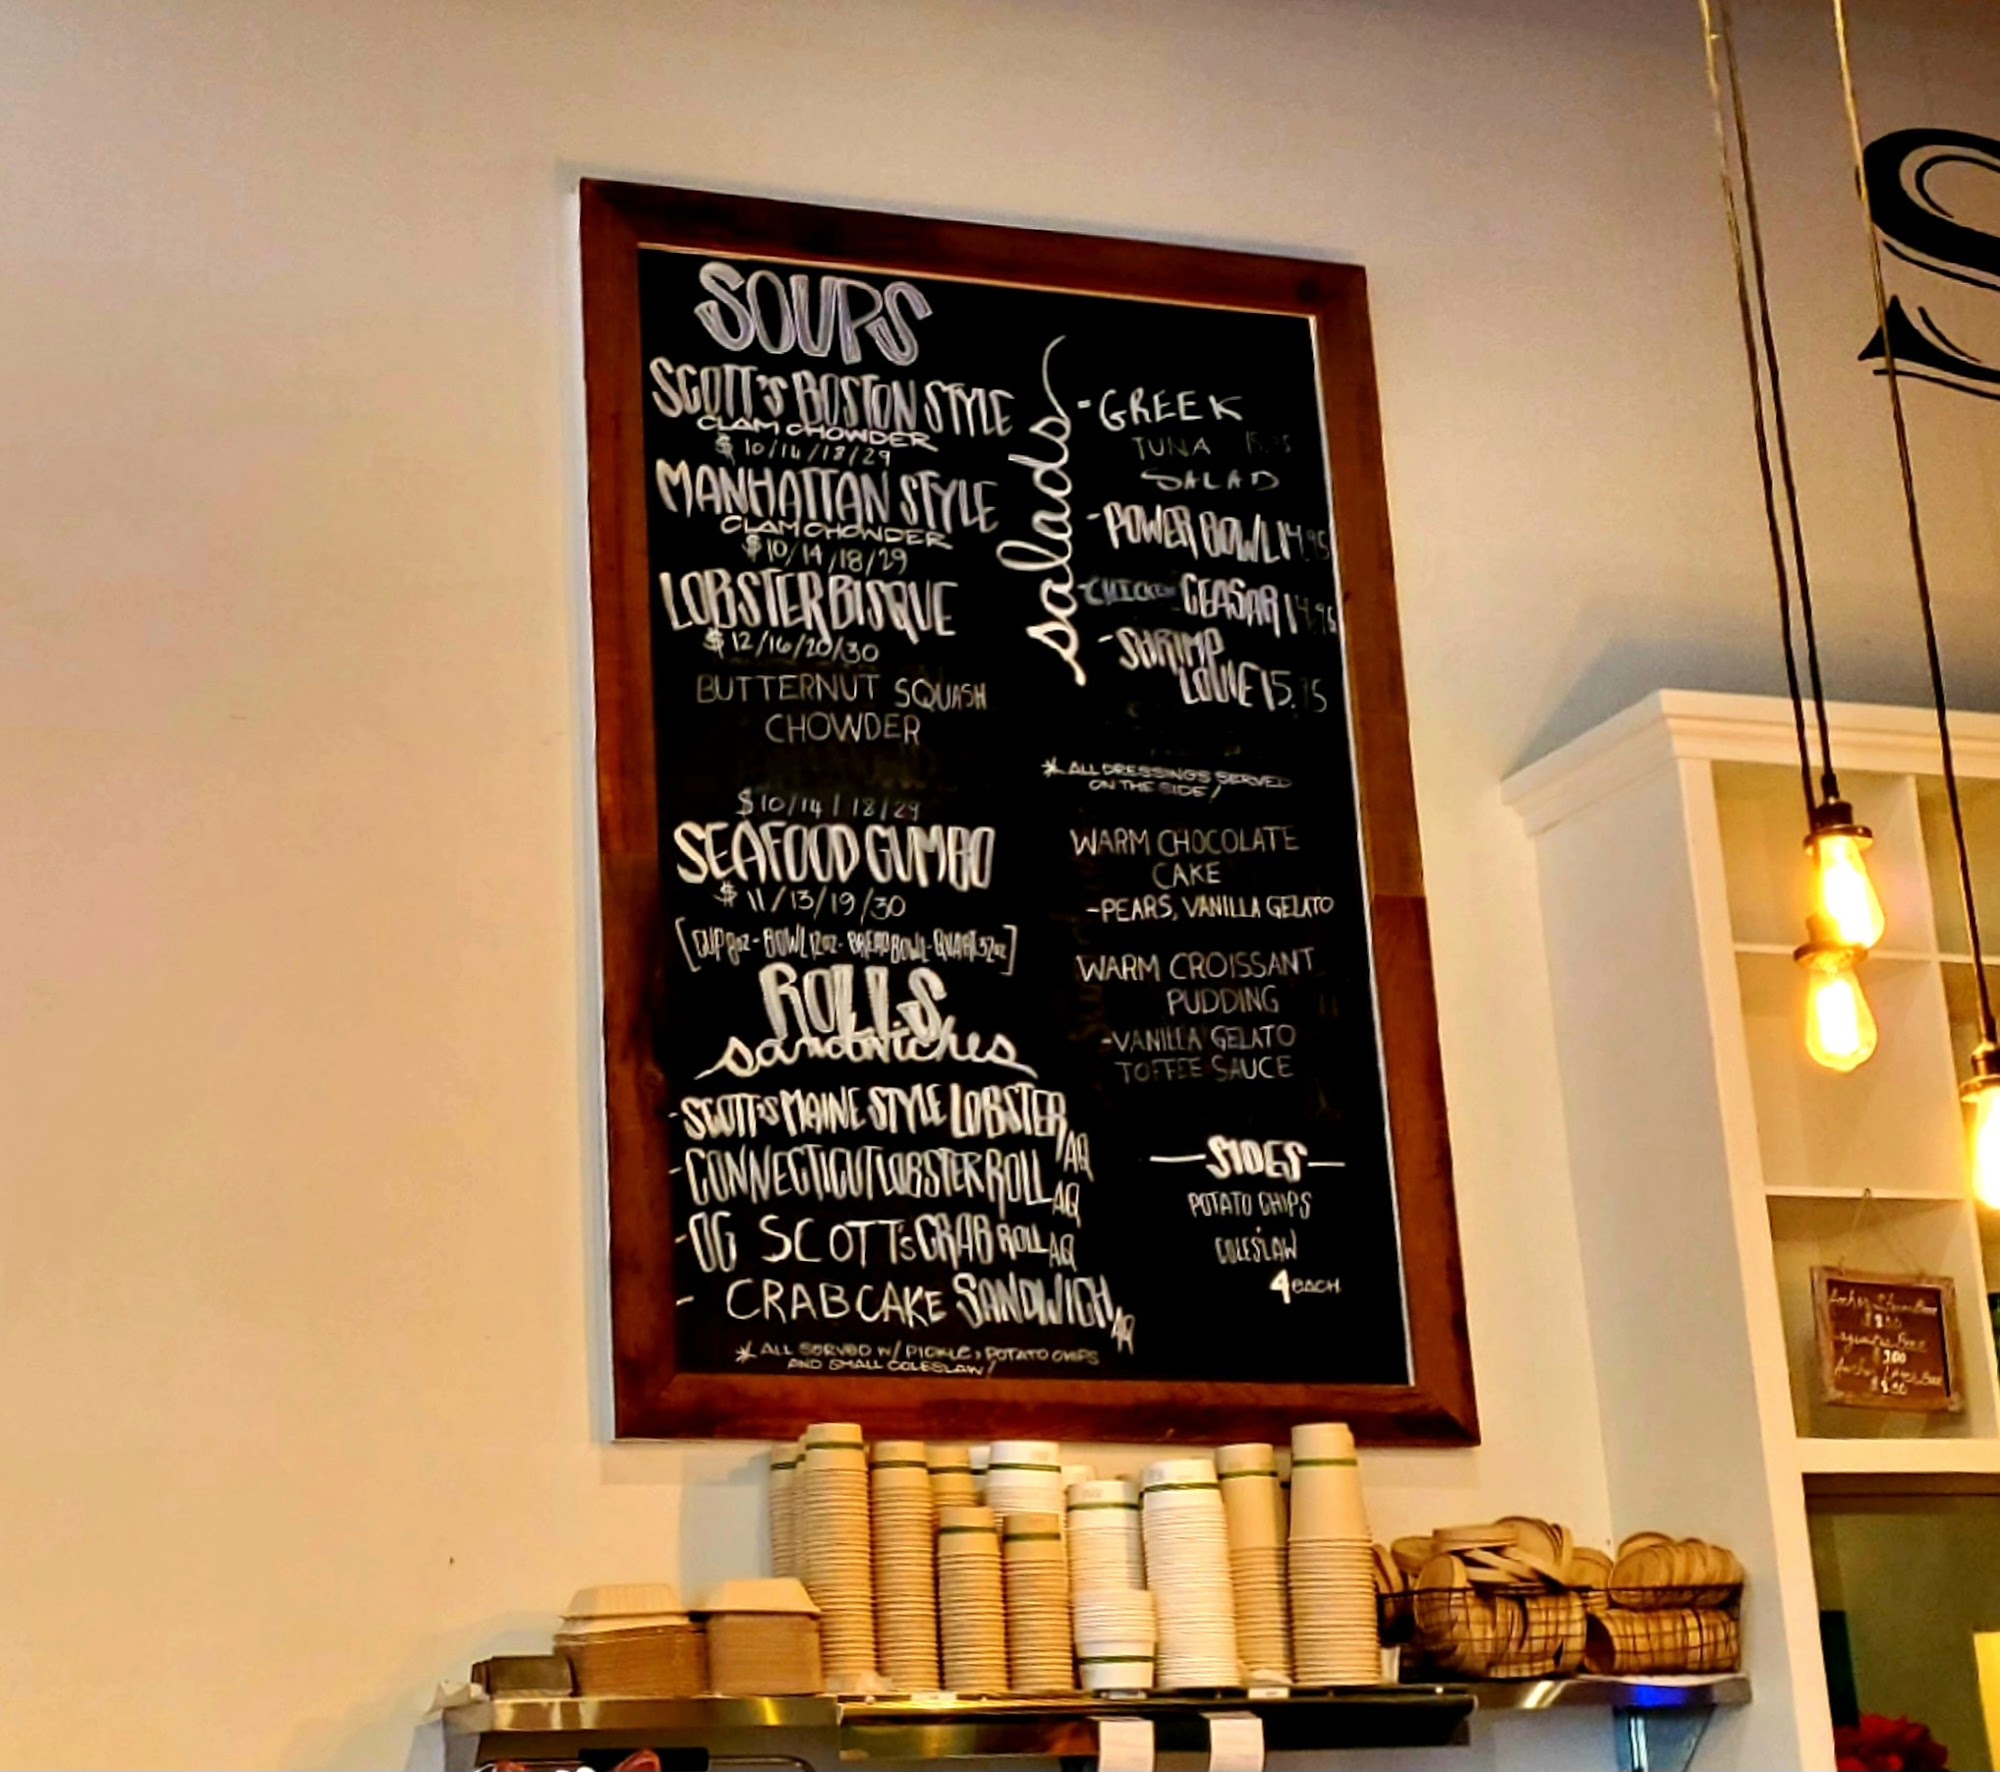 SOUPS
SCOTT'S BOSTON STYLE
CLAM CHOWDER
$ 10/14/18/29
MANHATTAN STYLE
CLAM CHOWDER
$10/14/18/29
LOBSTER BISQUE
$ 12/16/20/30
BUTTERNUT SQUASH
CHOWDER
$10/14/18/29
SEAFOOD GUMBO
$ 11/13/19/30
[CUP 8oz - BOWL 12oz - BREADBOWL - QUART 32oz]
ROLLS
sandwiches
-SCOTT'S MAINE STYLE LOBSTER AQ
-CONNECTICUT LOBSTER ROLL AQ
-OG SCOTT'S CRAB ROLL AQ
- CRAB CAKE SANDWICH AQ
* ALL SERVED W/ PICKLE, POTATO CHIPS
AND SMALL COLESLAW!
salads
- GREEK
TUNA
SALAD
- POWER BOWL 14.95
-CHICKEN CEASAR 14.96
- SHRIMP
LOUIE 15.
* ALL DRESSINGS SERVED
ON THE SIDE!
WARM CHOCOLATE
CAKE
-PEARS, VANILLA GELATO
WARM CROISSANT
PUDDING
-VANILLA GELATO
TOFFEE SAUCE
SIDES
POTATO CHIPS
COLESLAW
4 EACH
S